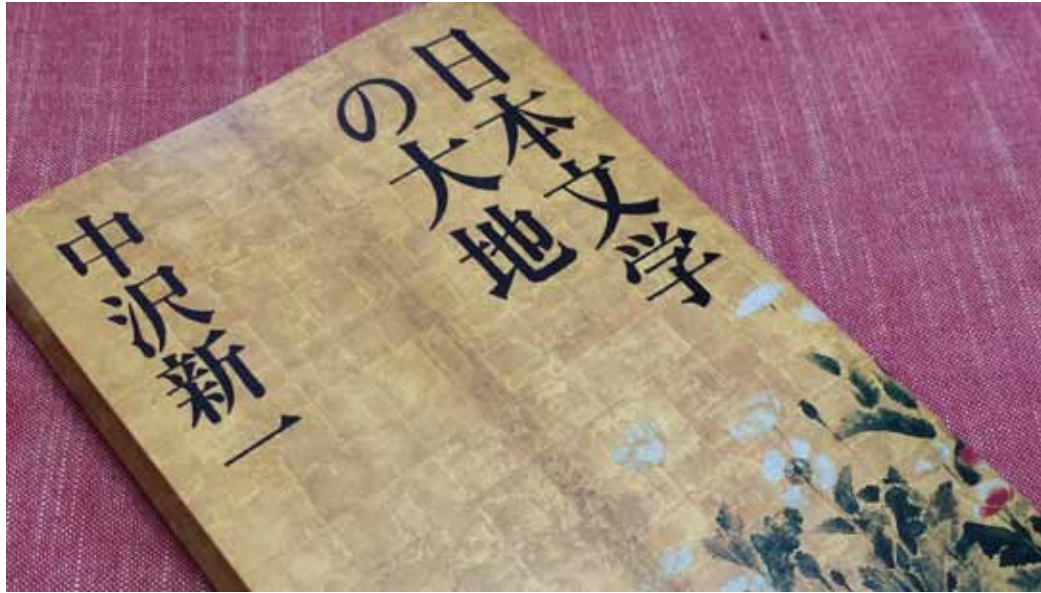 日本文学
の大地
中沢新一